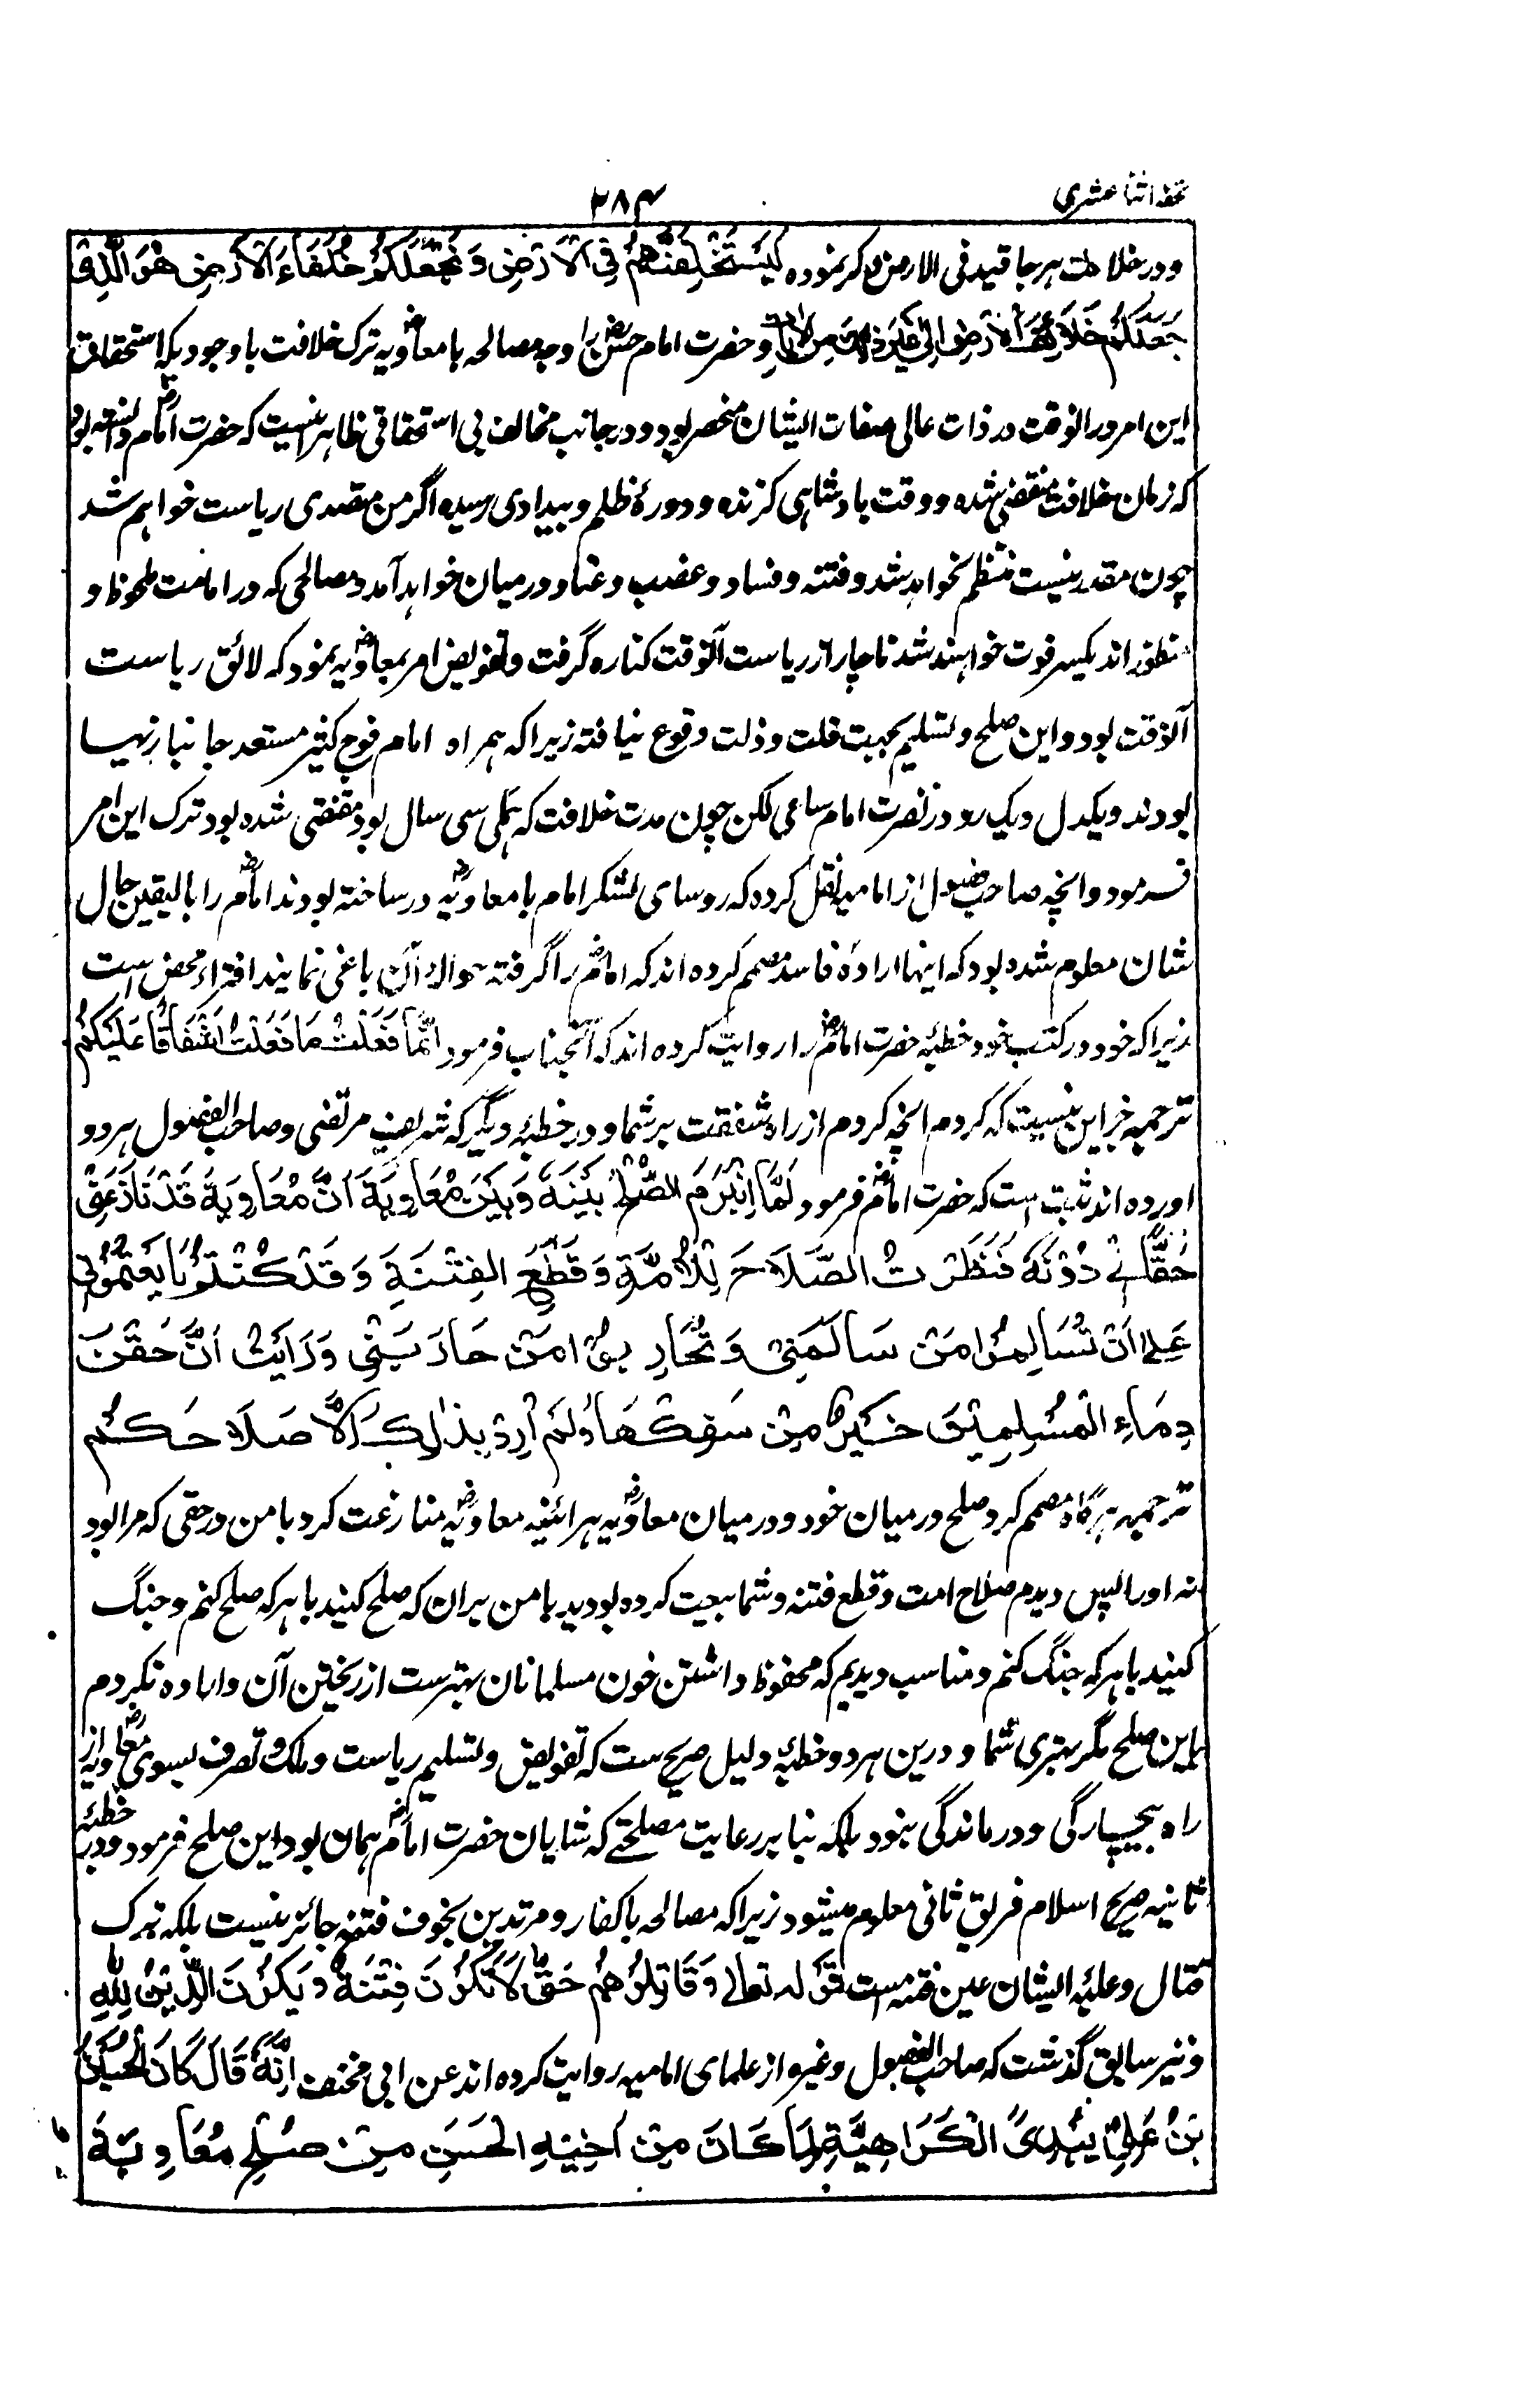 تحفه اثنا عشری
۲۸۴
و در خلافت هر جا قید فی الارض ذکر نموده لَیَسْتَخْلِفَنَّهُمْ فِی الْاَرْضِ وَ یَجْعَلُکُمْ خُلَفَاءَ الْاَرْضِ هُوَ الَّذِیْ
جَعَلَکُمْ خَلَائِفَ الْاَرْضِ الی غیر ذلک من الآیات و حضرت امام حسنؓ را وجه مصالحه با معاویهؓ و ترک خلافت باوجودیکه استحقاق
این امر در آنوقت در ذات عالی صفات ایشان منحصر بود و در جانب مخالف بی استحقاقی ظاهر اینست که حضرت امامؓ دانسته بود
که زمان خلافت منقضی شده و وقت بادشاهی گزنده و دورهٔ ظلم و بیدادی رسیده اگر من متصدی ریاست خواهم شد
چون مقدر نیست منتظم نخواهد شد و فتنه و فساد و غضب و عناد درمیان خواهد آمد و مصالحی که در امامت ملحوظ و
منظور اند یکسر فوت خواهند شد ناچار از ریاست آنوقت کناره گرفت و تفویض امر بمعاویهؓ نمود که لائق ریاست
آنوقت بود و این صلح و تسلیم بجهت قلت و ذلت وقوع نیافته زیرا که همراه امام فوج کثیر مستعد جانبازیها
بودند و یکدل و یک رو در نصرت امام ساعی لکن چون مدت خلافت که همگی سی سال بود منقضی شده بود ترک این امر
فرمود و آنچه صاحب فصول از امامیه نقل کرده که روسای لشکر امام با معاویهؓ در ساخته بودند امامؓ را بالیقین حال
شان معلوم شده بود که اینها ارادهٔ فاسد مصمم کرده اند که امامؓ را گرفته حوالهٔ آن باغی نمایند افتراء محض است
زیرا که خود در کتب خود خطبهٔ حضرت امامؓ را روایت کرده اند که آنجناب فرمود اِنَّمَا فَعَلْتُ مَا فَعَلْتُ اِشْفَاقًا عَلَیْکُمْ
ترجمه جز این نیست که کردم آنچه کردم از راه شفقت بر شما و در خطبهٔ دیگر که شریف مرتضی و صاحب الفصول هر دو
آورده اند ثبت است که حضرت امامؓ فرمود لَمَّا انْبَرَمَ الصُّلْحُ بَیْنَهُ وَبَیْنَ مُعَاوِیَةَ اَنَّ مُعَاوِیَةَ قَدْ نَازَعَنِیْ
حَقًّا لِیْ دُوْنَهُ فَنَظَرْتُ الصَّلَاحَ لِلْاُمَّةِ وَ قَطْعَ الفِتْنَةِ وَ قَدْ کُنْتُمْ بَایَعْتُمُوْنِیْ
عَلٰی اَنْ تُسَالِمُوْا مَنْ سَالَمَنِیْ وَ تُحَارِبُوْا مَنْ حَارَبَنِیْ وَ رَاَیْتُ اَنَّ حَقْنَ
دِمَاءِ الْمُسْلِمِیْنَ خَیْرٌ مِنْ سَفْکِهَا وَلَمْ اُرِدْ بِذٰلِکَ اِلَّا صَلَاحَکُمْ
ترجمه هرگاه مصمم کرد صلح درمیان خود و درمیان معاویهؓ هرائنه معاویهؓ منازعت کرد با من در حقی که مرا بود
نه او را پس دیدم صلاح امت و قطع فتنه و شما بیعت کرده بودید با من بر آن که صلح کنید با هر که صلح کنم و جنگ
کنید با هر که جنگ کنم و مناسب دیدیم که محفوظ داشتن خون مسلمانان بهترست از ریختن آن و اراده نکردم
باین صلح مگر بهتری شما و درین هر دو خطبه دلیل صریح ست که تفویض و تسلیم ریاست و ملک و تصرف بسوی معاویهؓ از
راه بیچارگی و درماندگی نبود بلکه بنا بر رعایت مصلحتی که شایان حضرت امامؓ همان بود این صلح فرمود و در خطبهٔ
ثانیه صریح اسلام فریق ثانی معلوم میشود زیرا که مصالحه با کفار و مرتدین بخوف فتنه جائز نیست بلکه ترک
قتال و غلبهٔ ایشان عین فتنه است قوله تعالی وَقَاتِلُوْهُمْ حَتّٰی لَا تَکُوْنَ فِتْنَةٌ وَّ یَکُوْنَ الدِّیْنُ لِلّٰهِ
و نیز سابق گذشت که صاحب الفصول و غیره از علمای امامیه روایت کرده اند عن ابی مخنف اِنَّهُ قَالَ کَانَ الْحُسَیْنُ
بْنُ عَلِیٍّ یُبْدِیْ الْکَرَاهِیَّةَ لِمَا کَانَ مِنْ اَخِیْهِ الْحَسَنِ مِنْ صُلْحِ مُعَاوِیَةَ